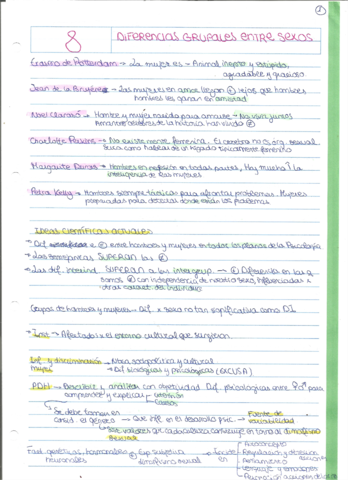 8 DIFERENCIAS GRUPALES ENTRE SEXOS
Erasmo de Rotterdam → La mujer es → Animal inepto y estúpido,
agradable y gracioso
Jean de la Bruyère → Las mujeres en amor llegan + lejos que hombres
hombres les ganan en amistad
Noel Clarasó → Hombre y mujer nacidos para amarse → No vivir juntos
amantes célebres de la historia han vivido
Charlotte Perkins → No existe mente femenina. El cerebro no es org. sexual
sería como hablar de un hígado típicamente femenino
Margarite Duras → Hombres en profesión en todas partes, Hay mucho
inteligencia de las mujeres
Petra Kelly → Hombres siempre tácticas para afrontar problemas. Mujeres
preparadas para detectar donde están los problemas
Ideas científicas actuales
→ Dif e entre hombres y mujeres en todos los planos de la Psicología
→ Las semejanzas SUPERAN las
→ Las dif. individ SUPERAN a las intergrup. → Diferencia en las q
somos con independencia de nuestro sexo, influenciadas x
otras caract del individuo
Grupos de hombres y mujeres → Dif. x sexo no tan significativa como DI
→ Afectados x el entorno cultural que surgieron
y discriminación → Nace sociopolítica y cultural
mujer → Dif biológicas y psicológicas (EXCUSA)
→ Describir y analizar con objetividad Dif. psicológicas entre para
comprender y explicar extensión
causas
Se debe tomar en
consid el género → Que infl en el desarrollo psic → Fuente de variabilidad
→ valores que cada cultura construye en torno al dimorfismo
sexual
Fact genéticos, hormonales
neuronales dimorfismo sexual en → Autoconcepto
Regulación y emociones
Pensamiento
Lenguaje y emociones